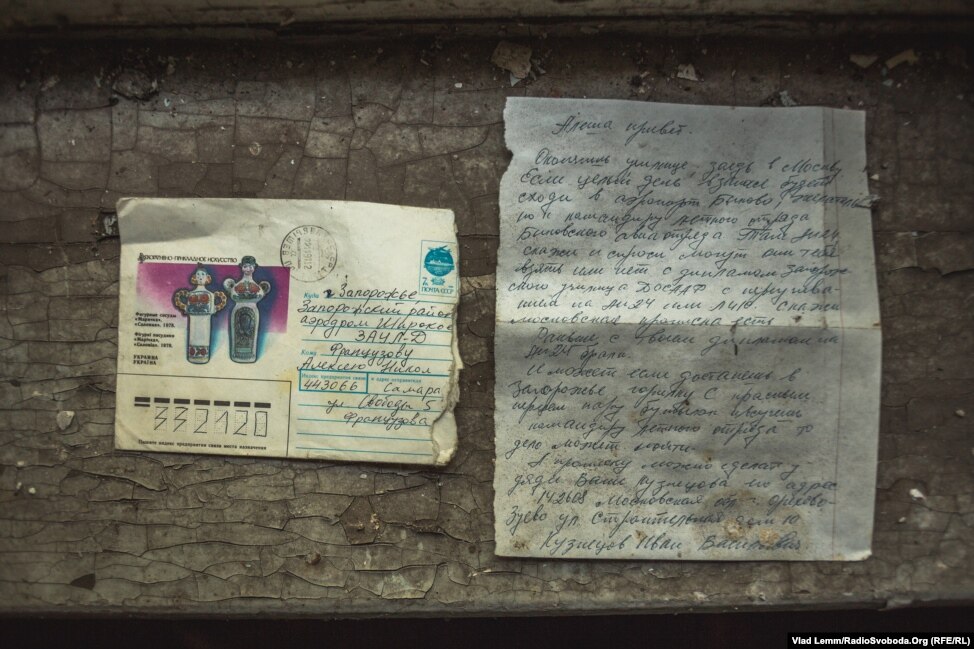 ДЕКОРАТИВНО-ПРИКЛАДНОЕ ИСКУССТВО
Фигурные сосуды
«Маричка»,
«Саломия». 1978.
Фігурні посудини
«Марічка»,
«Саломія». 1978.
УКРАИНА
УКРАЇНА
7к
ПОЧТА СССР
Куда г Запорожье
Запорожский район
аэродром Широкое
ЗАУЛ-Д
Кому Французову
Алексею Никол
Индекс предприятия связи и адрес отправителя
443066 Самара
ул Свободы 5
Французова
332120
Пишите индекс предприятия связи места назначения
Алеша привет.
Окончишь училище, заедь в Москву
Если целый день в запасе будет
сходи в аэропорт Быково,
но к командиру летного отряда
Быковского авиаотряда Там АН24
скажи и спроси могут они тебя
взять или нет с дипломом Запорож
ского училища ДОСААФ с переучива-
нием на АН24 или Л410 скажи
московская прописка есть
Раньше с твоим дипломом на
АН24 брали.
И может если достанешь в
Запорожье горилку с красным
перцем пару бутылок
командиру летного отряда то
дело может пойти
А прописку можно сделат у
дяди Вани Кузнецова по адрес
142608 Московская обл г Орехово-
Зуево ул. Строительная дом 10
Кузнецов Иван
Vlad Lemm/RadioSvoboda.Org (RFE/RL)